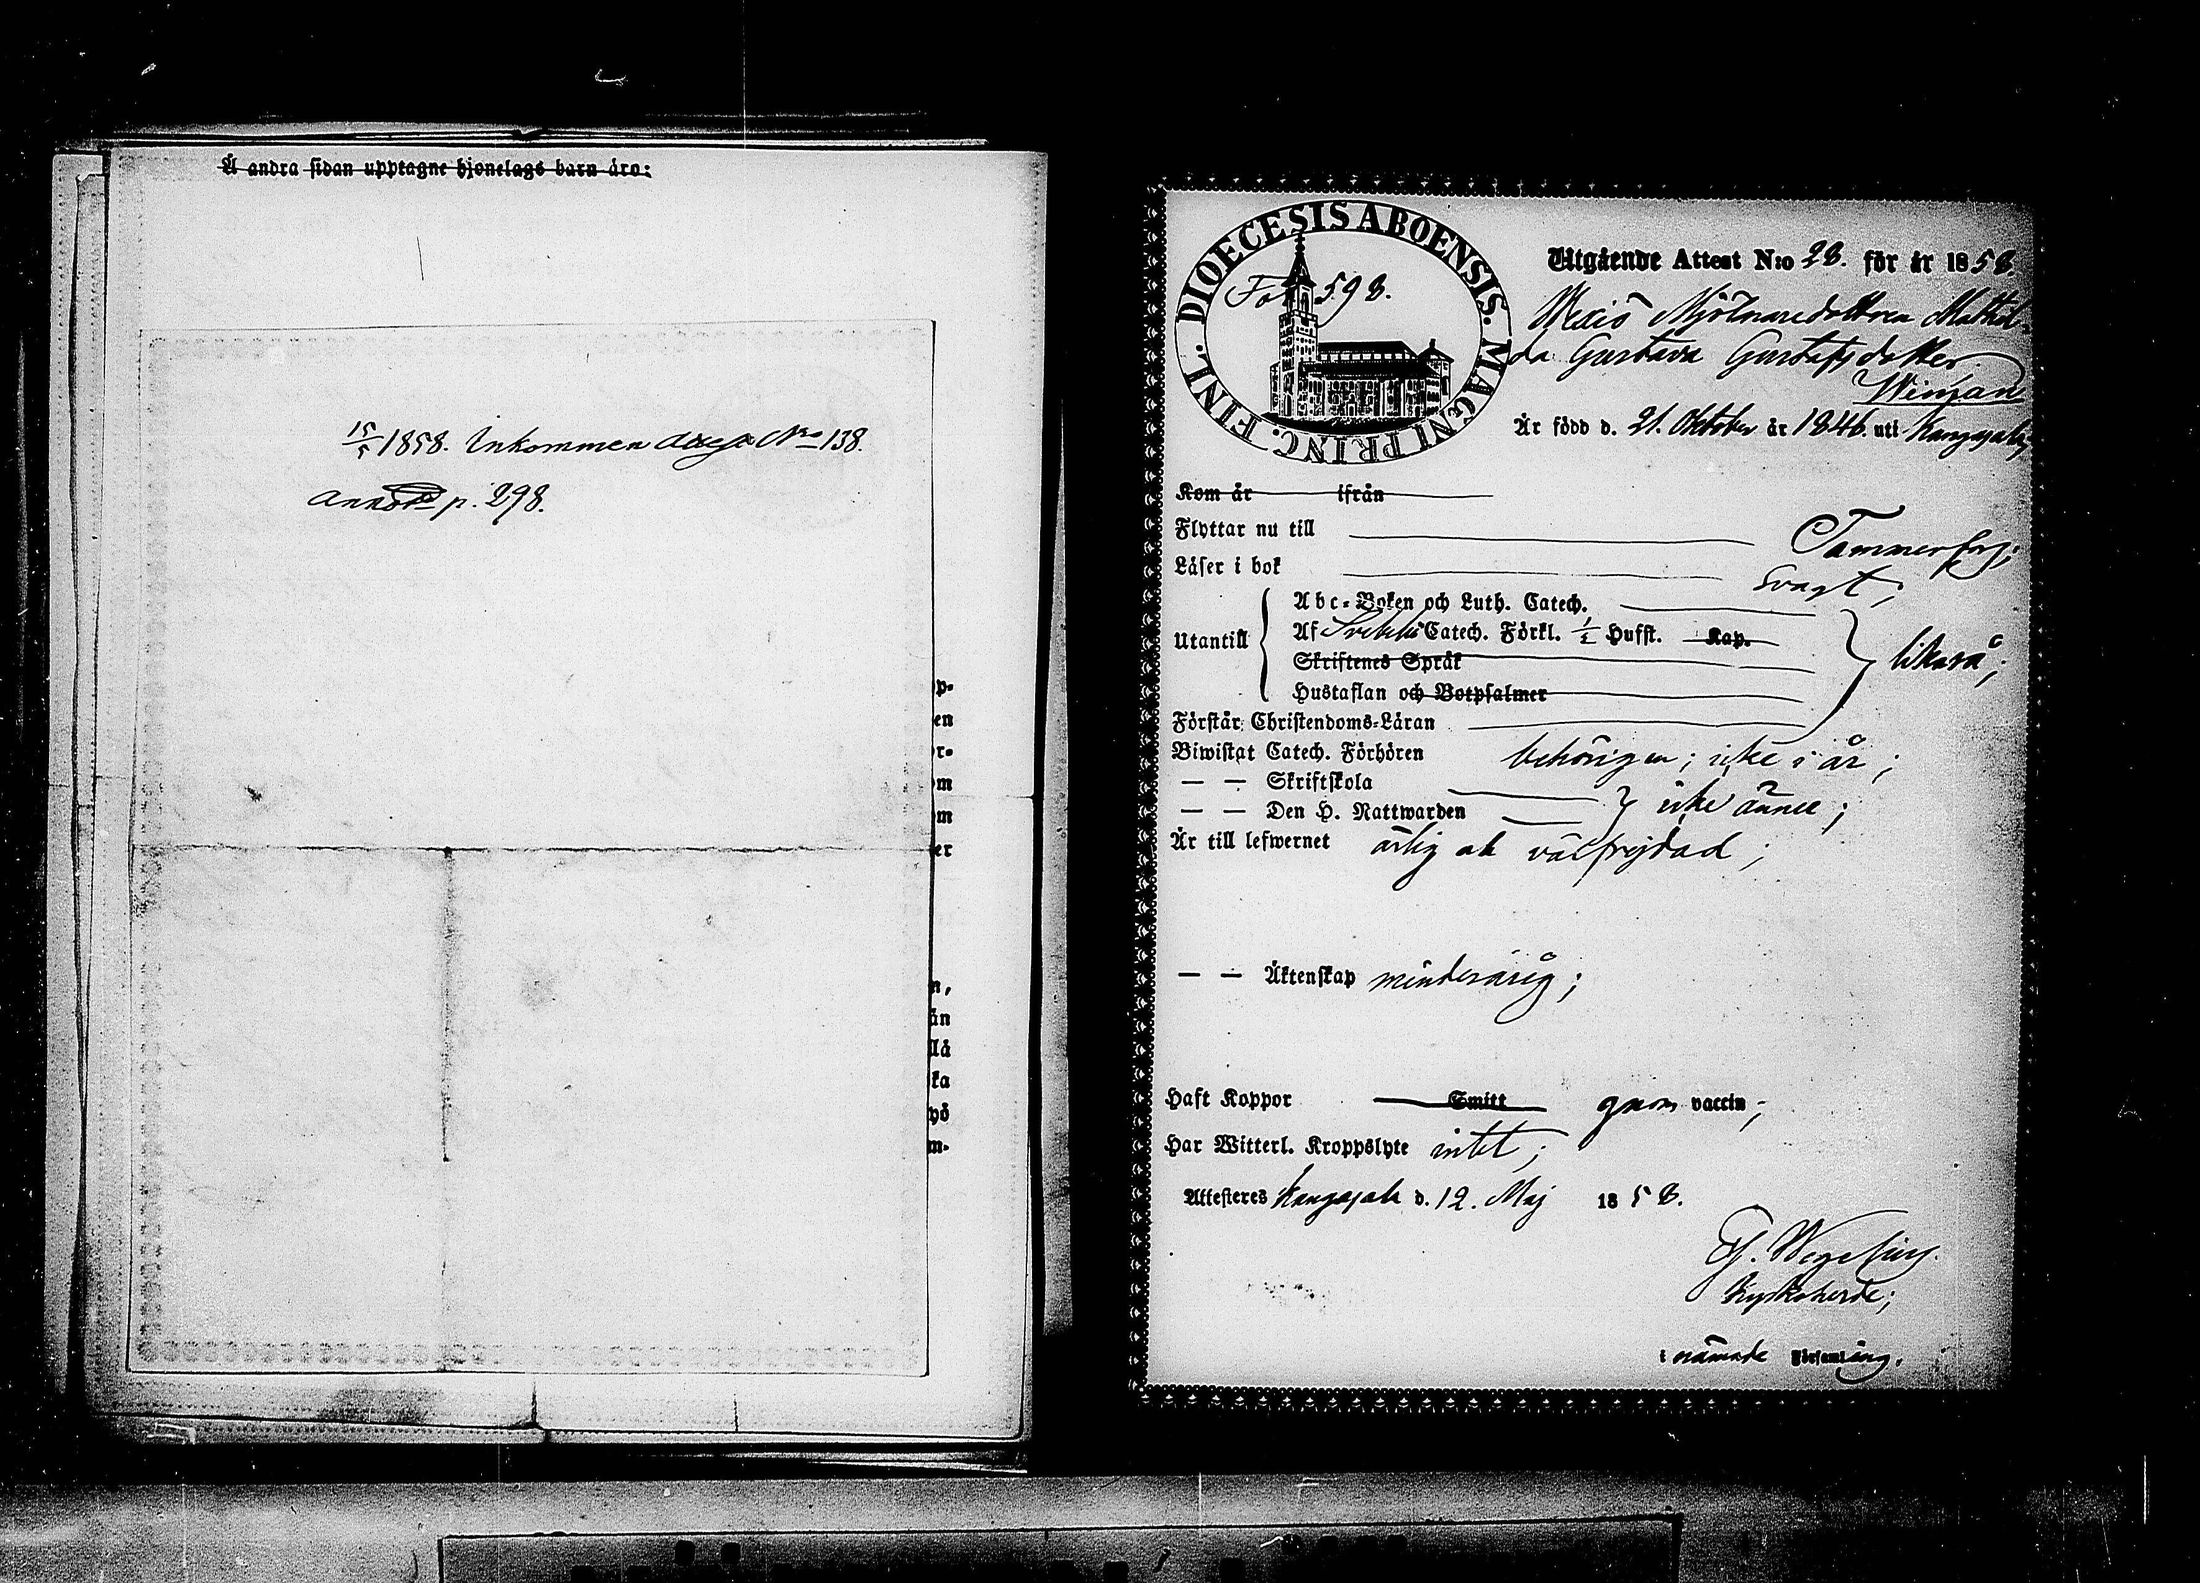 Å andra sidan upptagne hjonelags barn äro:
15/5 1858. Inkommen No 138.
annot. p. 298.
p-
en
r-
om
om
er
n,
än
llä
ka
yö
m-
DIOECESIS ABOENSIS. MAGNI PRINC. FINL.
Fol 598.
Utgående Attest N:o 28. för år 1858.
Mjölnaredottren Mathil
da Gustava Gustafsdotter
Winman
Är född d. 21. Oktober år 1846. uti Kangasala;
Kom år ifrån
Flyttar nu till Tammerfors;
Läser i bok svagt;
Utantill
Abc-Boken och Luth. Catech.
Af Svebelii Catech. Förkl. 1/2 Hufst. Kap.
Skriftenes Språk
Hustaflan och Botpsalmer
likaså;
Förstår Christendoms-Läran
Biwistat Catech. Förhören behörigen; icke i år;
— — Skriftskola
— — Den H. Nattwarden icke ännu;
Är till lefwernet ärlig och välfrejdad;
— — Äktenskap minderårig;
Haft Koppor Smitt genom vaccin;
Har Witterl. Kroppslyte intet;
Attesteres Kangasala d. 12. Maj 1858.
Wegelius.
Kyrkoherde;
i nämnde Församling.